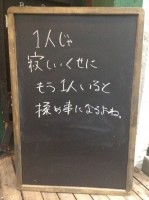 1人じゃ
寂しいくせに
もう1人いると
揉め事になるよね。